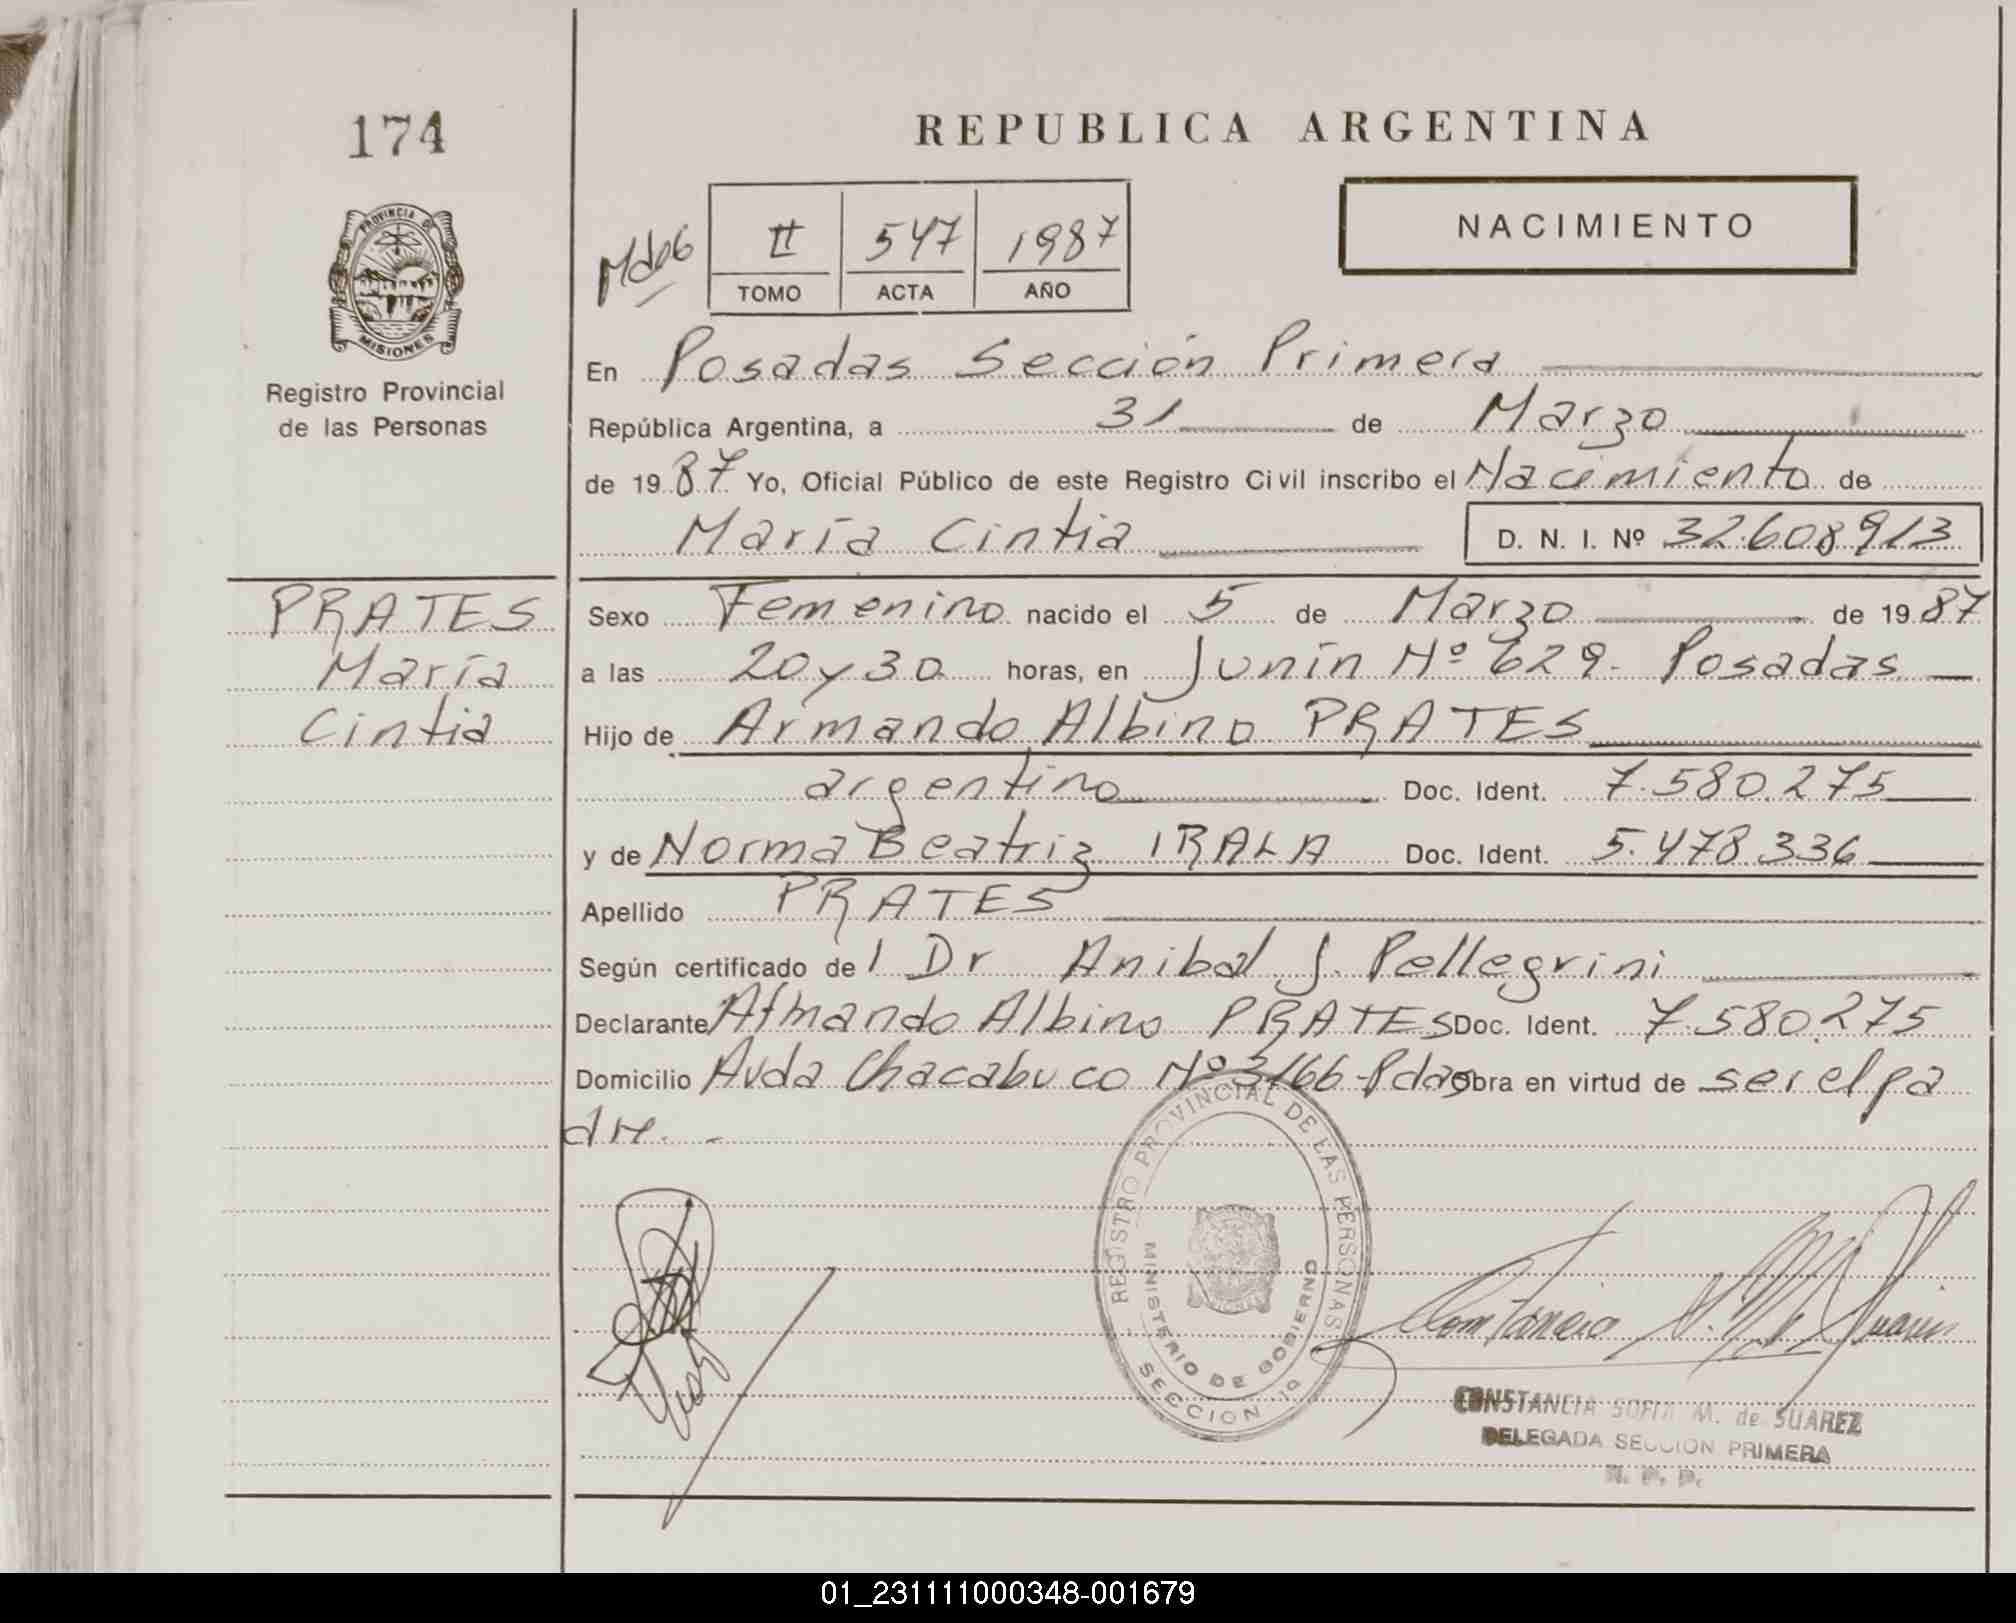 174
REPUBLICA ARGENTINA
NACIMIENTO
II 547 1987
TOMO ACTA AÑO
PROVINCIA DE
MISIONES
Registro Provincial
de las Personas
En Posadas Sección Primera
República Argentina, a 31 de Marzo
de 19 87 Yo, Oficial Público de este Registro Civil inscribo el Nacimiento de
María Cintia D. N. I. Nº 32.608913
PRATES
María
Cintia
Sexo Femenino nacido el 5 de Marzo de 19 87
a las 20 y 30 horas, en Junín Nº 629- Posadas
Hijo de Armando Albino PRATES
argentino Doc. Ident. 7.580.275
y de Norma Beatriz IRALA Doc. Ident. 5.478.336
Apellido PRATES
Según certificado de l Dr Anibal J. Pellegrini
Declarante Armando Albino PRATES Doc. Ident. 7.580.275
Domicilio Avda Chacabuco Nº 3166-Pdas Obra en virtud de ser el pa
dre.-
REGISTRO PROVINCIAL DE LAS PERSONAS
MINISTERIO DE GOBIERNO
SECCION 1a
CONSTANCIA SOFIA M. de SUAREZ
DELEGADA SECCION PRIMERA
01_231111000348-001679